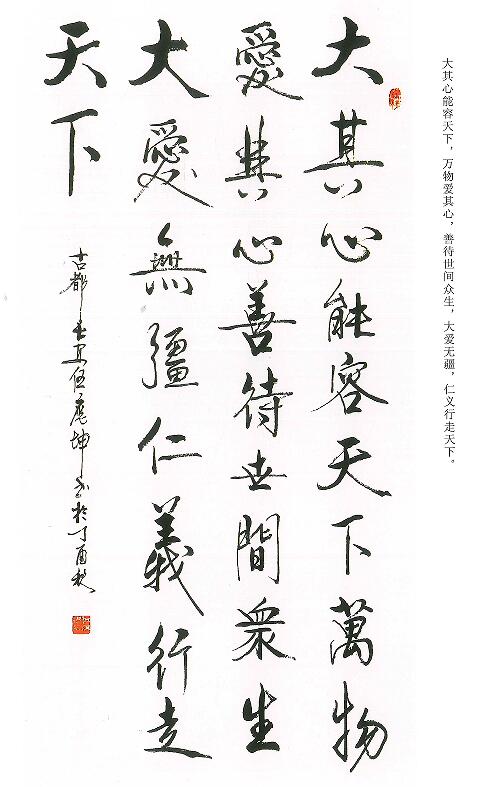 大其心能容天下，万物爱其心，善待世间众生，大爱无疆，仁义行走天下。
大其心能容天下萬物
愛其心善待世間衆生
大愛無疆仁義行走
天下
古都长安坤书於丁酉秋